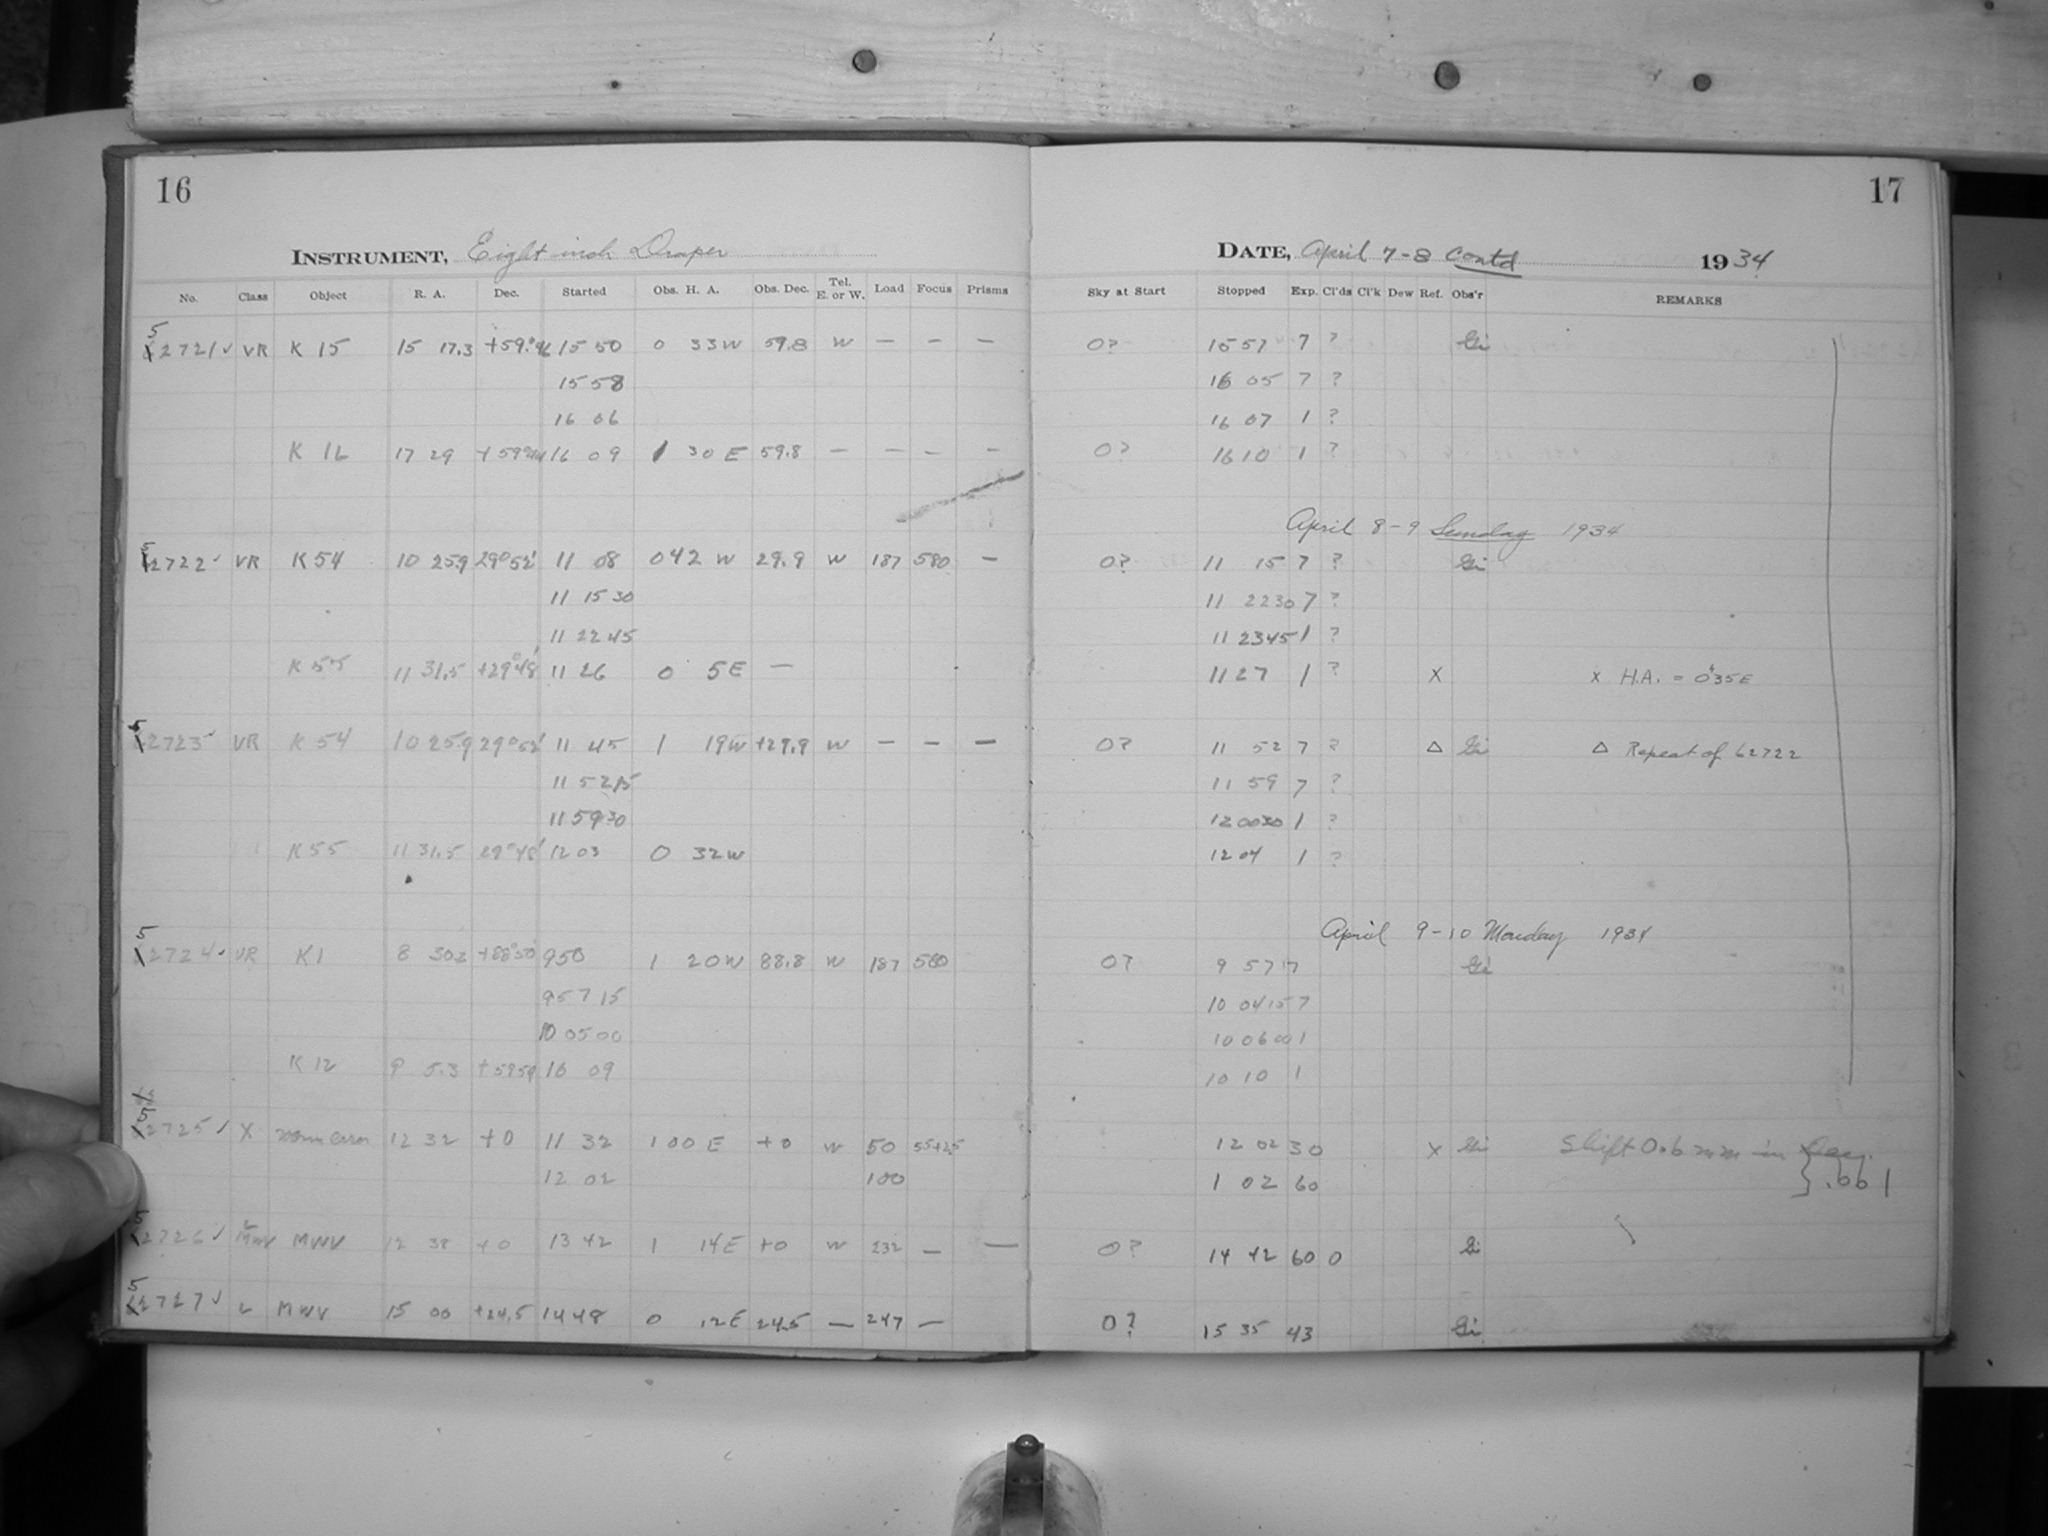 16
INSTRUMENT, Eight inch Draper
No. Class Object R. A. Dec. Started Obs. H. A. Obs. Dec. Tel. E. or W. Load Focus Prisms
52721 ✓ VR K 15 15 17.3 15 50 0 33 W 59.8 W — — —
15 58
16 06
17 29 16 09 1 30 E 59.8 — — — —
52722 ✓ VR K 54 10 25.9 29° 52' 11 08 0 42 W 29.9 W 187 580 —
11 15 30
11 22 45
K 55 11 31.5 +29° 48' 11 26 0 5 E —
52723 ✓ VR K 54 10 25.9 29° 52' 11 45 1 19 W +29.9 W — — —
11 52 15
11 59 30
K 55 11 31.5 29° 48' 12 03 0 32 W
52724 ✓ VR K1 8 30.2 +88° 50' 9 50 1 20 W 88.8 W 187 580
9 57 15
10 05 00
K 12 9 5.3 +59 59 10 09
52725 ✓ X 12 32 +0 11 32 1 00 E +0 W 50
12 02 100
52726 ✓ MWV 12 38 +0 13 42 1 14 E +0 W 232 — —
52727 ✓ L MWV 15 00 +24.5 14 48 0 12 E 24.5 — 247 —
17
DATE, April 7-8 Contd 1934
Sky at Start Stopped Exp. Cl'ds Cl'k Dew Ref. Obs'r REMARKS
0? 15 57 7 ? Gi
16 05 7 ?
16 07 1 ?
0? 16 10 1 ?
April 8-9 Sunday 1934
0? 11 15 7 ? Gi
11 22 30 7 ?
11 23 45 1 ?
11 27 1 ? X x H.A. = 0h 35 E
0? 11 52 7 ? Δ Gi Δ Repeat of 62722
11 59 7 ?
12 00 30 1 ?
12 04 1 ?
April 9-10 Monday 1934
0? 9 57 7 Gi
10 04 15 7
10 06 00 1
10 10 1
12 02 30 X Gi Shift 0.6 mm in Dec.
1 02 60 } .661
0? 14 42 60 0 Gi
0? 15 35 43 Gi